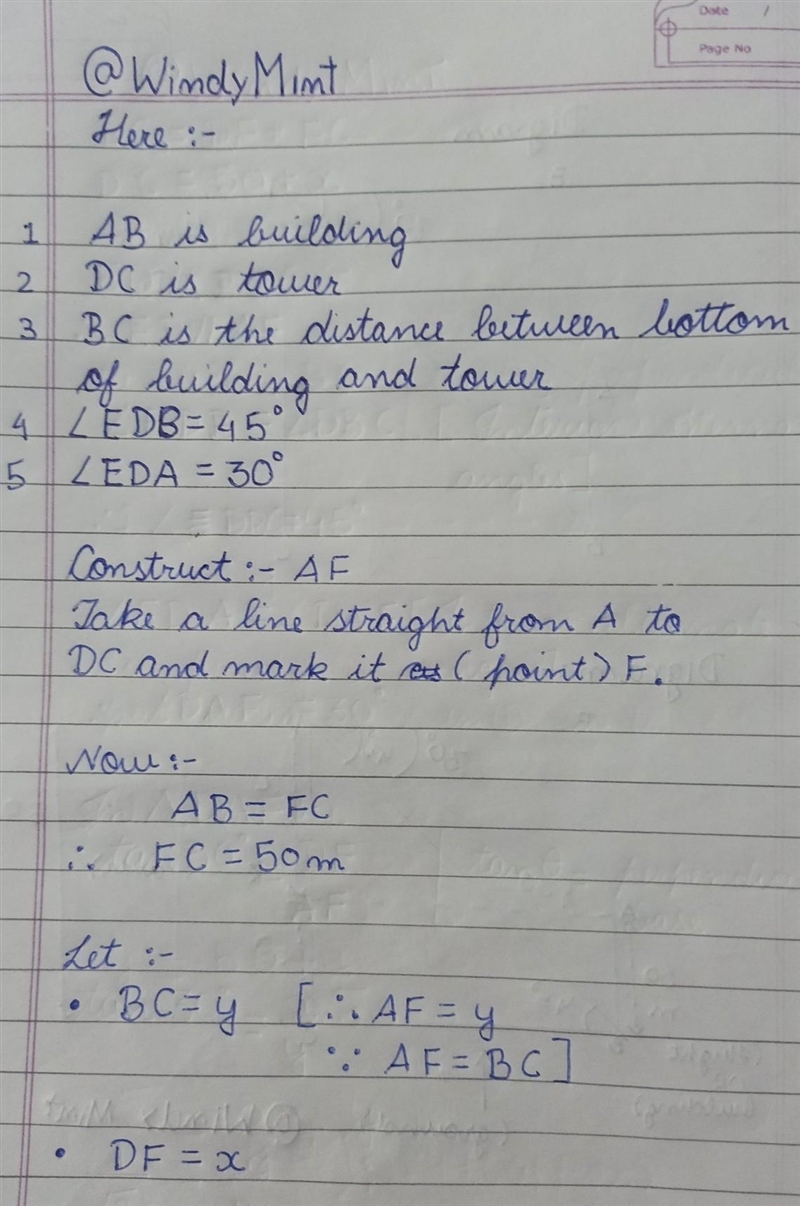 Date /
Page No
@WindyMint
Here :-
1 AB is building
2 DC is tower
3 BC is the distance between bottom
of building and tower
4 ∠EDB = 45°
5 ∠EDA = 30°
Construct :- AF
Take a line straight from A to
DC and mark it as (point) F.
Now :-
AB = FC
∴ FC = 50m
Let :-
• BC = y [∴ AF = y
∵ AF = BC]
• DF = x